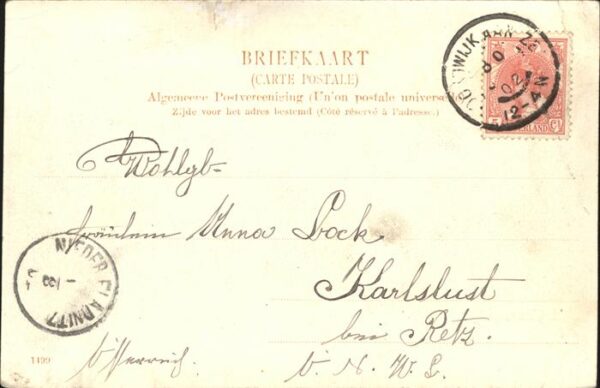 BRIEFKAART
(CARTE POSTALE)
Algemeene Postvereeniging (Union postale universe
Zijde voor het adres bestemd (Côté réservé à l'adresse.)
NOORDWIJK AAN ZE
12-4N
5
CT
Wohlgb-
Fräulein Anna Bock
Karlslust
bei Retz.
Österreich
U. N. W. L.
NIEDER FLADNITZ
1499